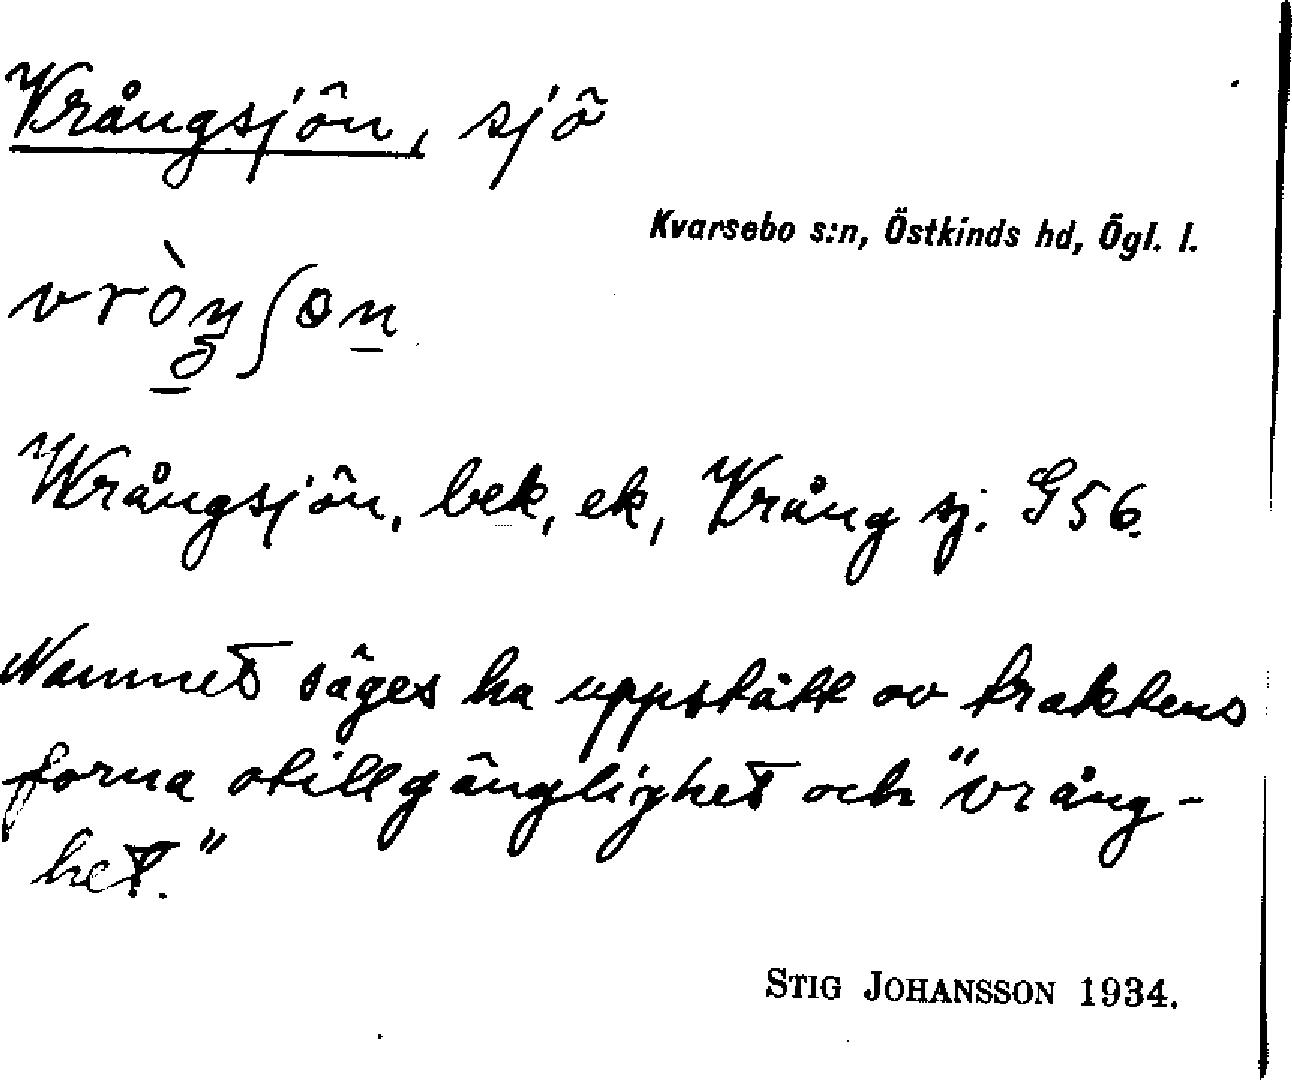 Vrångsjön, sjö
Kvarsebo s:n, Östkinds hd, Ögl. l.
Wrångsjön, bek, ek, Vrång sj. G56.
Namnet säges ha uppstått av traktens
forna otillgänglighet och "vrång-
het."
STIG JOHANSSON 1934.